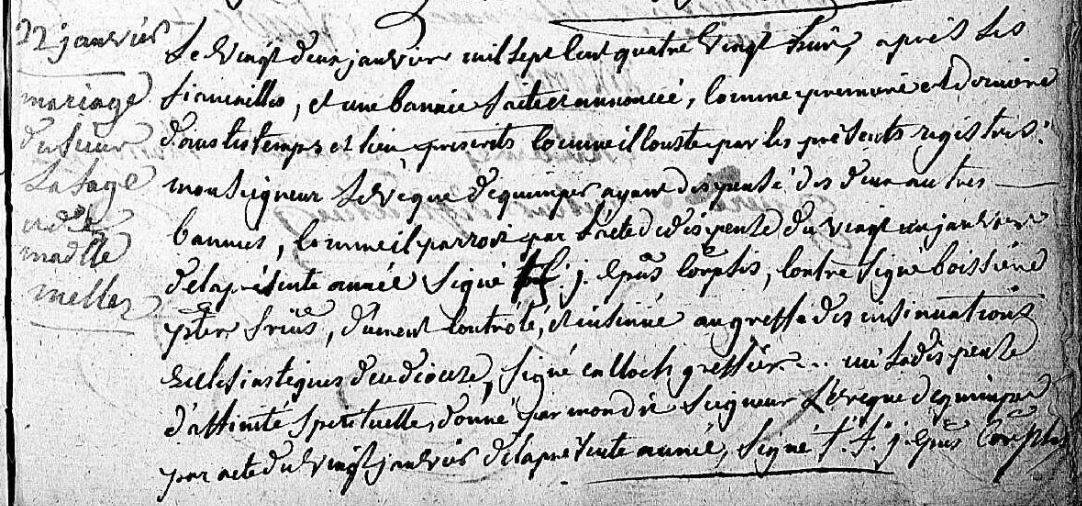 22 janvier
mariage
du sieur
Le Sage
et de
madlle
mellez
Le vingt deux janvier mil sept cent quatre vingt trois, après les
fiançailles, et une bannie faite et annoncée, comme premiere et derniere
dans les temps et lieu presents comme il conste par les présents registres.
monseigneur L'évèque de quimper ayant dispensé des deux autres
bannies, comme il parroit par l'acte de dispense du vingt un janvier
de la présente année signé f. j. Epus Corptis, contre signé boissière
pter srius, duement controlé, et insinué au greffe des insinuations
Eclésiastiques du diocèse, signé calloch greffier... vû la dispense
d'affinité spirituelle, donné par mon dit Seigneur L'évèque de quimper
par acte du vingt janvier de la présente année, signé t. f. j. Epus Corptis